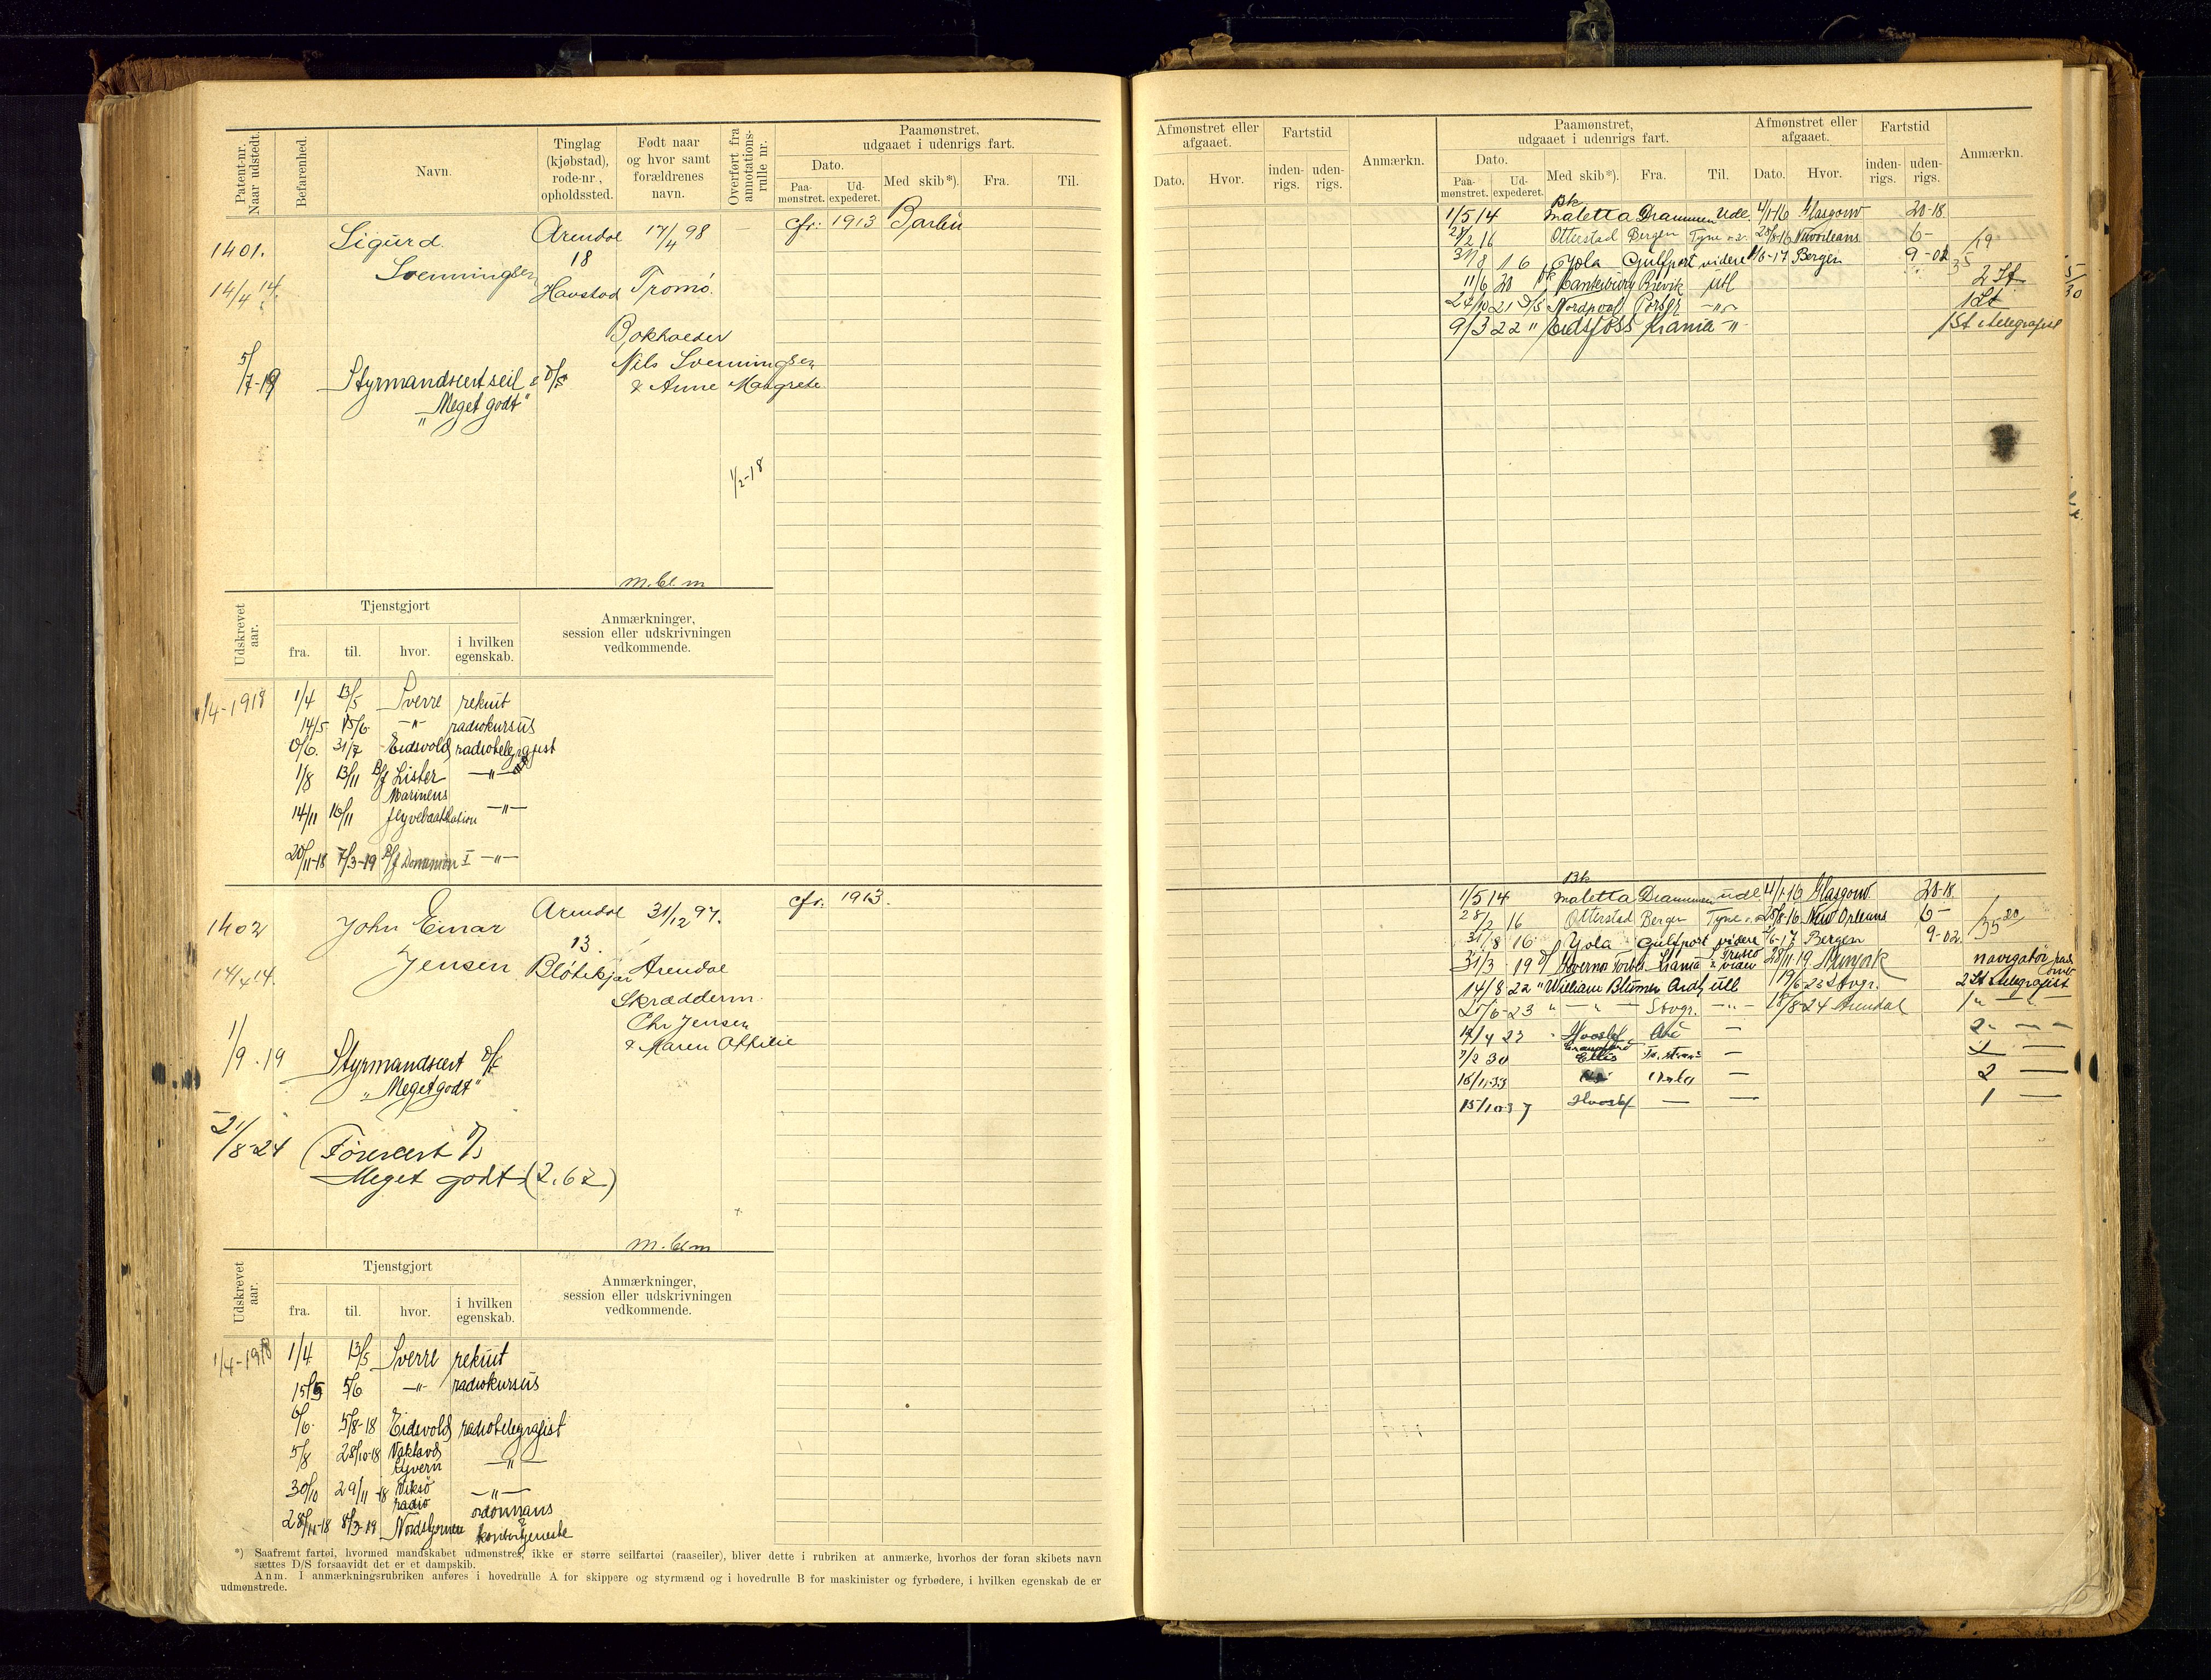 Patent-nr. Naar udstedt.
Befarenhed.
Navn.
Tinglag (kjøbstad), rode-nr., opholdssted.
Født naar og hvor samt forældrenes navn.
Overført fra annotations-rulle nr.
Paamønstret, udgaaet i udenrigs fart.
Dato.
Paa-mønstret.
Ud-expederet.
Med skib*).
Fra.
Til.
1401.
Sigurd
Svenningsen
Arendal
18
Havstad
17/4 98
Tromö.
cfr. 1913
14/4 14.
Bokholder
Nils Svenningsen
& Anne Margrete
5/7-19
Styrmandscert seil & D/S
"Meget godt"
1/2-18
m. bl. m
Udskrevet aar.
Tjenstgjort
fra.
til.
hvor.
i hvilken egenskab.
Anmærkninger, session eller udskrivningen vedkommende.
1/4-1918 1/4 13/5 Sverre rekrut
14/5 15/6 -"- radiokursus
31/7 Eidsvold radiotelegrafist
1/8 13/11 Lister -"-
Marinens
14/11 16/11 flyvebaatstation -"-
20/11-18 7/3-19 -"-
1402
John Einar
Jensen
Arendal
13.
31/12 97.
Arendal
cfr. 1913.
14/4 14.
Skrædderm.
Chr Jensen
& Maren
1/9-19
Styrmandscert D/S
"Meget godt"
21/8-24
Førercert D/S
Meget godt (2.62)
m. bl. m
Udskrevet aar.
Tjenstgjort
fra.
til.
hvor.
i hvilken egenskab.
Anmærkninger, session eller udskrivningen vedkommende.
1/4-1918 1/4 13/5 Sverre rekrut
15/5 5/6 -"- radiokursus
6/6 5/8-18 Eidsvold radiotelegrafist
5/8 28/10-18 -"-
30/10 29/11-18 radio -"-
28/11-18 8/3-19 Nordstjernen ordonnans
kontortjeneste
*) Saafremt fartøi, hvormed mandskabet udmønstres, ikke er større seilfartøi (raaseiler), bliver dette i rubriken at anmærke, hvorhos der foran skibets navn
sættes D/S forsaavidt det er et dampskib.
Anm. I anmærkningsrubriken anføres i hovedrulle A for skippere og styrmænd og i hovedrulle B for maskinister og fyrbødere, i hvilken egenskab de er
udmønstrede.
Afmønstret eller afgaaet.
Dato.
Hvor.
Fartstid
inden-rigs.
uden-rigs.
Anmærkn.
Paamønstret, udgaaet i udenrigs fart.
Dato.
Paa-mønstret.
Ud-expederet.
Med skib*).
Fra.
Til.
Afmønstret eller afgaaet.
Dato.
Hvor.
Fartstid
inden-rigs.
uden-rigs.
Anmærkn.
Bk
1/5 14 Maletta Drammen Udl 4/1-16 Glasgow 20-18
28/2 16 Otterstad Bergen Tyne 28/8-16 6-
31/8 16 Yola Gulfport videre 1/6-17 Bergen 9-02
11/6 20 utl 2 St
24/10 21 D/S Nordpool Porsgr -"- 1 St
9/3 22 " Eidsfoss Krania -"- 1 St & telegrafist
Bk
1/5 14 Maletta Drammen udl 4/1-16 Glasgow 20-18
28/2 16 Otterstad Bergen Tyne 28/8-16 New Orleans 6-
31/8 16 Yola Gulfport videre 1/6-17 Bergen 9-02
31/3-19 Krania 28/11-19 Newyork navigatør
14/8 22 " William Blumer utl 19/6 23 Stvgr. 2 St telegrafist
23 " " Stvgr. 24 Arendal 1 "
Hvoslef
30
2
Hvoslef 1